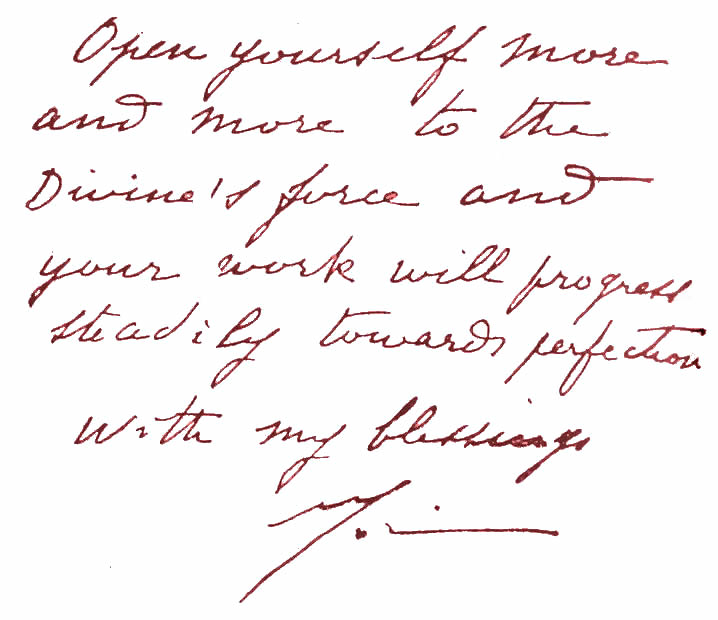 Open yourself more
and more to the
Divine's force and
your work will progress
steadily towards perfection
with my blessings